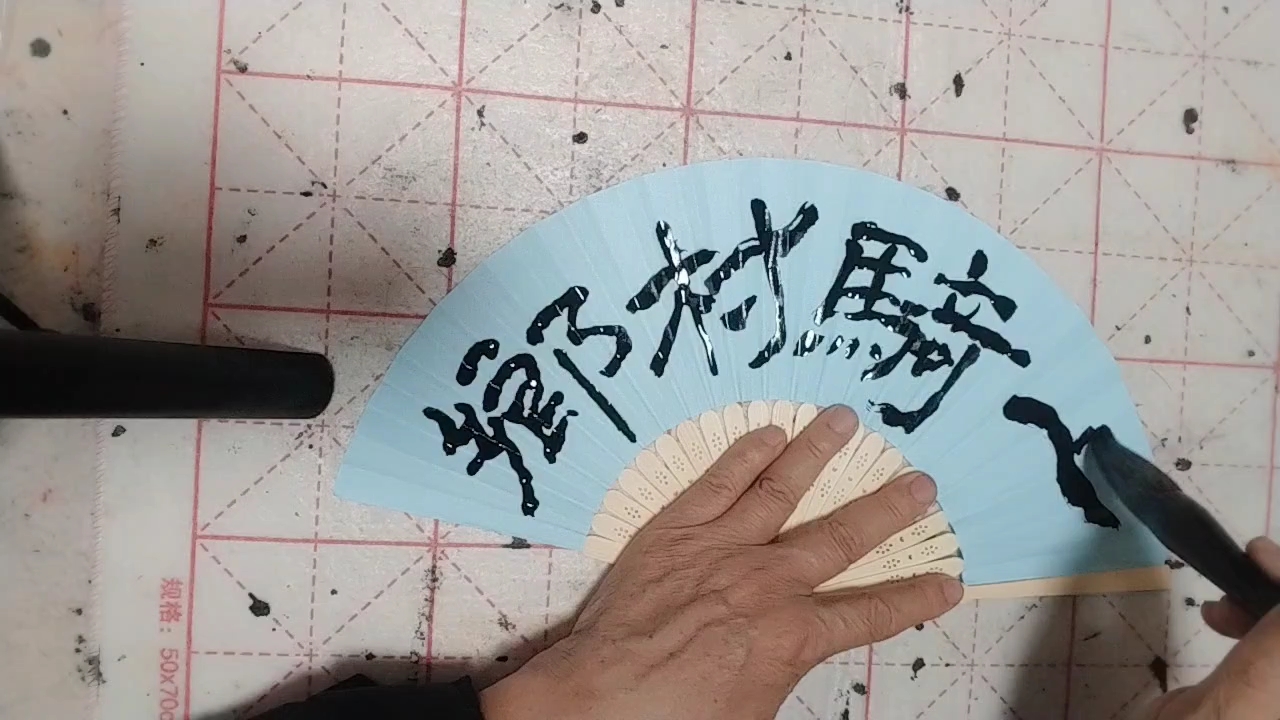 鄉村騎
规格：50x70c